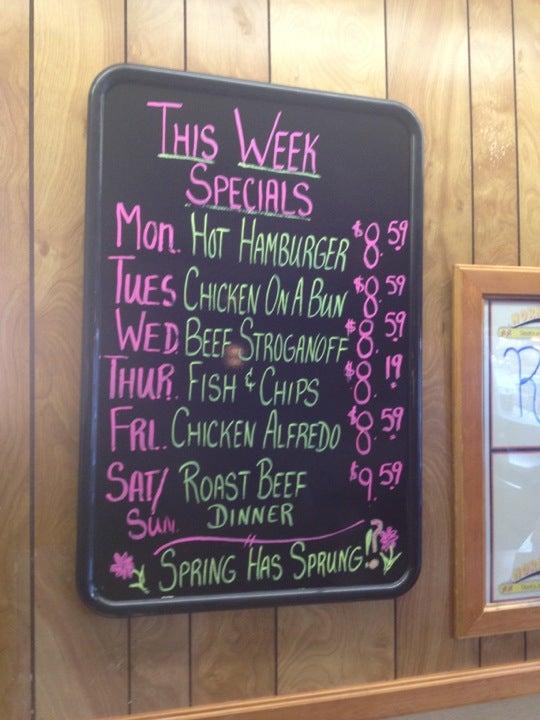 THIS WEEK
SPECIALS
MON. HOT HAMBURGER $8.59
TUES CHICKEN ON A BUN $8.59
WED. BEEF STROGANOFF $8.59
THUR. FISH & CHIPS $8.19
FRI. CHICKEN ALFREDO $8.59
SAT/ ROAST BEEF $9.59
SUN. DINNER
SPRING HAS SPRUNG!?